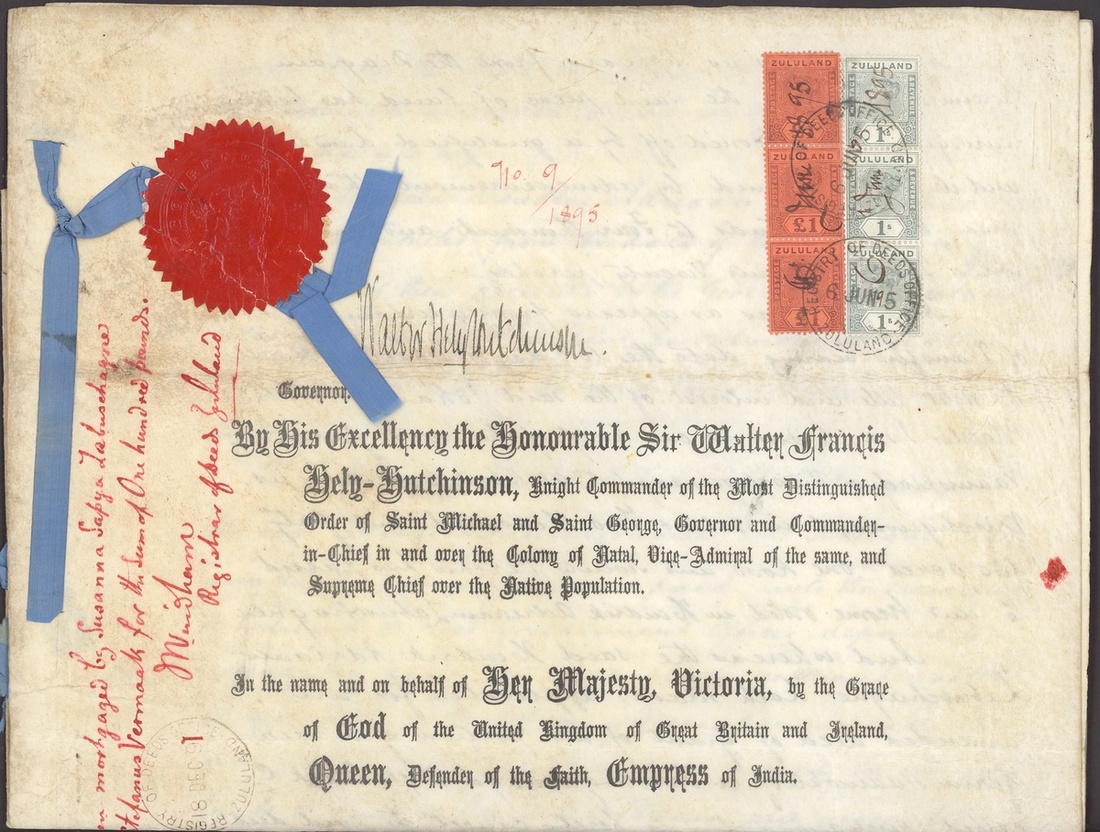 No. 9
1895
ZULULAND
ZULULAND
1s
ZULULAND
ZULULAND
£1
1s
ZULULAND
£1
1s
REGISTRY OF DEEDS OFFICE
6 JUN 95
ZULULAND
Walter Hely Hutchinson.
Governor.
By His Excellency the Honourable Sir Walter Francis
Hely-Hutchinson, Knight Commander of the Most Distinguished
Order of Saint Michael and Saint George, Governor and Commander-
in-Chief in and over the Colony of Natal, Vice-Admiral of the same, and
Supreme Chief over the Native Population.
In the name and on behalf of Her Majesty, Victoria, by the Grace
of God of the United Kingdom of Great Britain and Ireland,
Queen, Defender of the Faith, Empress of India.
mortgaged by Susanna Sapya Labuschagne
Stefanus Vermaak for the Sum of One hundred pounds.
Registrar of Deeds Zululand
REGISTRY OF DEEDS
18 DEC 91
ZULULAND